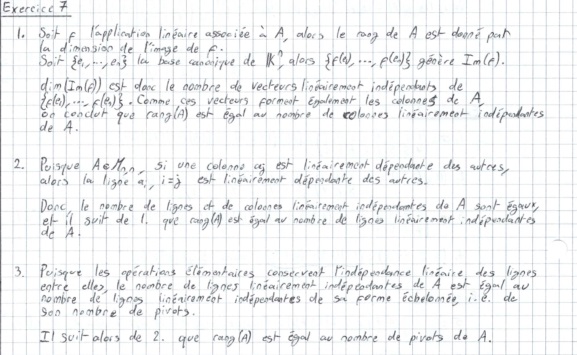 Exercice 7
1. Soit f l'application linéaire associée à A, alors le rang de A est donné par
la dimension de l'image de f.
Soit {e₁,...,eₙ} la base canonique de 𝕂ⁿ, alors {f(e₁),...,f(eₙ)} génère Im(f).
dim(Im(f)) est donc le nombre de vecteurs linéairement indépendants de
{f(e₁),...,f(eₙ)}. Comme ces vecteurs forment également les colonnes de A,
on conclut que rang(A) est égal au nombre de colonnes linéairement indépendantes
de A.
2. Puisque A∈Mₙ,ₙ, si une colonne aj est linéairement dépendante des autres,
alors la ligne aᵢ, i=j est linéairement dépendante des autres.
Donc le nombre de lignes et de colonnes linéairement indépendantes de A sont égaux,
et il suit de 1. que rang(A) est égal au nombre de lignes linéairement indépendantes
de A.
3. Puisque les opérations élémentaires conservent l'indépendance linéaire des lignes
entre elles, le nombre de lignes linéairement indépendantes de A est égal au
nombre de lignes linéairement indépendantes de sa forme échelonnée, i.e. de
son nombre de pivots.
Il suit alors de 2. que rang(A) est égal au nombre de pivots de A.